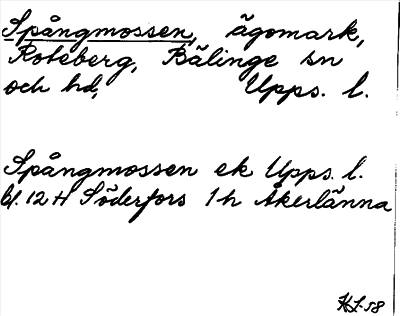 Spångmossen, ägomark,
Roteberg, Bälinge sn
och hd, Upps. l.
Spångmossen ek Upps. l.
bl. 12 H Söderfors 1 h Åkerlänna